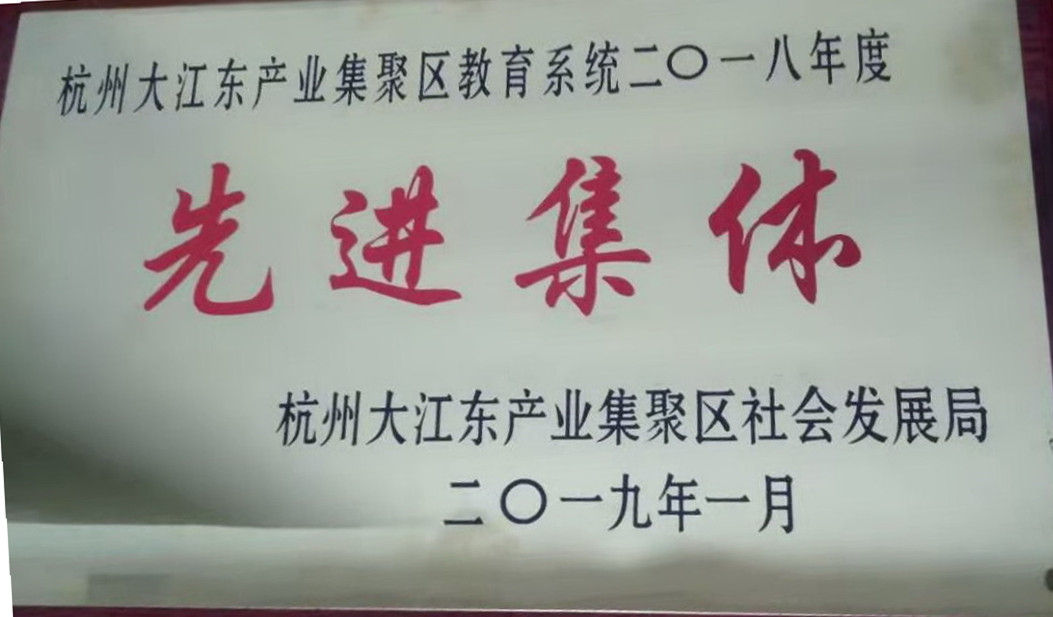 杭州大江东产业集聚区教育系统二〇一八年度
先进集体
杭州大江东产业集聚区社会发展局
二〇一九年一月